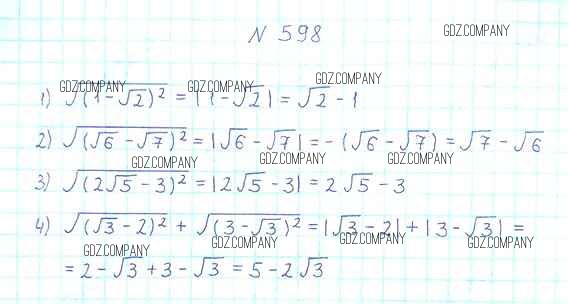 N 598
GDZ.COMPANY
GDZ.COMPANY GDZ.COMPANY GDZ.COMPANY
1) √(1-√2)² = |1-√2| = √2 - 1
2) √(√6 - √7)² = |√6 - √7| = -(√6 - √7) = √7 - √6
GDZ.COMPANY GDZ.COMPANY GDZ.COMPANY
3) √(2√5 - 3)² = |2√5 - 3| = 2√5 - 3
4) √(√3 - 2)² + √(3 - √3)² = |√3 - 2| + |3 - √3| =
GDZ.COMPANY GDZ.COMPANY GDZ.COMPANY GDZ.COMPANY
= 2 - √3 + 3 - √3 = 5 - 2√3